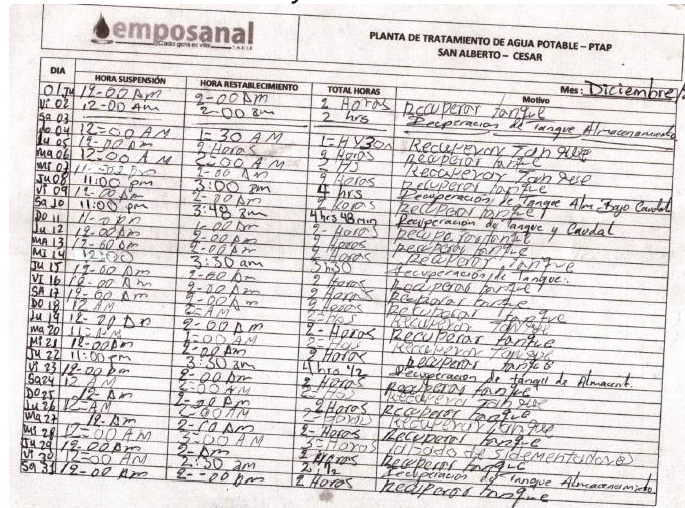 emposanal
PLANTA DE TRATAMIENTO DE AGUA POTABLE – PTAP
SAN ALBERTO – CESAR
Mes: Diciembre/
DIA HORA SUSPENSIÓN HORA RESTABLECIMIENTO TOTAL HORAS Motivo
01 Ju 12-00 Am 2-00 Am 2 Horas Recuperar tanque
Vi 02 12-00 Am 2-00 am 2 hrs Recuperacion de tanque Almacenamiento
Sa 03
Do 04 12=00 AM 1=30 AM Recuperar Tanque
Lu 05 12-00 Am 2 Horas 2 Horas recuperar tanque
Ma 06 12=00 AM 2=00 AM Recuperar Tanque
Mi 07 2-00 Am 2 Horas recuperar tanque
Ju 08 11:00 pm 3:00 am 4 hrs Recuperación de Tangue Alm. Bajo Caudal
Vi 09 12-00 Am 2-00 Am 2 Horas Recuperar tanque
Sa 10 11:00 pm 3:48 am 4 hrs 48 min Recuperación de Tanque y Caudal
Do 11 2-Horas
Lu 12 12-00 Am 2-00 Am 2 Horas recuperar tanque
MA 13 12-00 Am 2-00 Am 2 Horas recuperar tanque
Mi 14 12:00 3:30 am 3h30 recuperación de Tanque.
Ju 15 12-00 Am 2-00 Am 2 Horas Recuperar tanque
Vi 16 12-00 Am 2-00 Am 2 Horas
SA 17 12-00 Am 2-00 Am 2 Horas Recuperar tanque
Do 18 12 AM 2=AM Recuperar Tanque
Lu 19 12-00 Am 2-00 Am 2-Horas Recuperar tanque
Ma 20 1=00 AM Recuperar Tanque
Mi 21 12-00 Am 2-00 Am 2 Horas Recuperar tanque
Ju 22 11:00 pm 3:30 am 4 hrs 1/2 recuperacion de tanque de Almacent.
Vi 23 12-00 Am 2-00 Am 2 Horas Recuperar tanque
Sa 24 12 AM 2=00 AM Recuperar Tanque
Do 25 12-Am 2-00 Am 2 Horas Recuperar tanque
Lu 26 12=AM 2=00 AM Recuperar Tanque
Ma 27 12-Am 2-00 Am 2-Horas Recuperar tanque
Mi 28 12=00 AM 3=00 AM 3=Horas labado de sidementadores
Ju 29 12-00 Am 2-Am 2 Horas Recuperar tanque
Vi 30 12=00 AM 2:30 am 2:1/2 Recuperacion de Tanque Almacenamiento
Sa 31 12-00 Am 2-00 Am 2 Horas Recuperar tanque